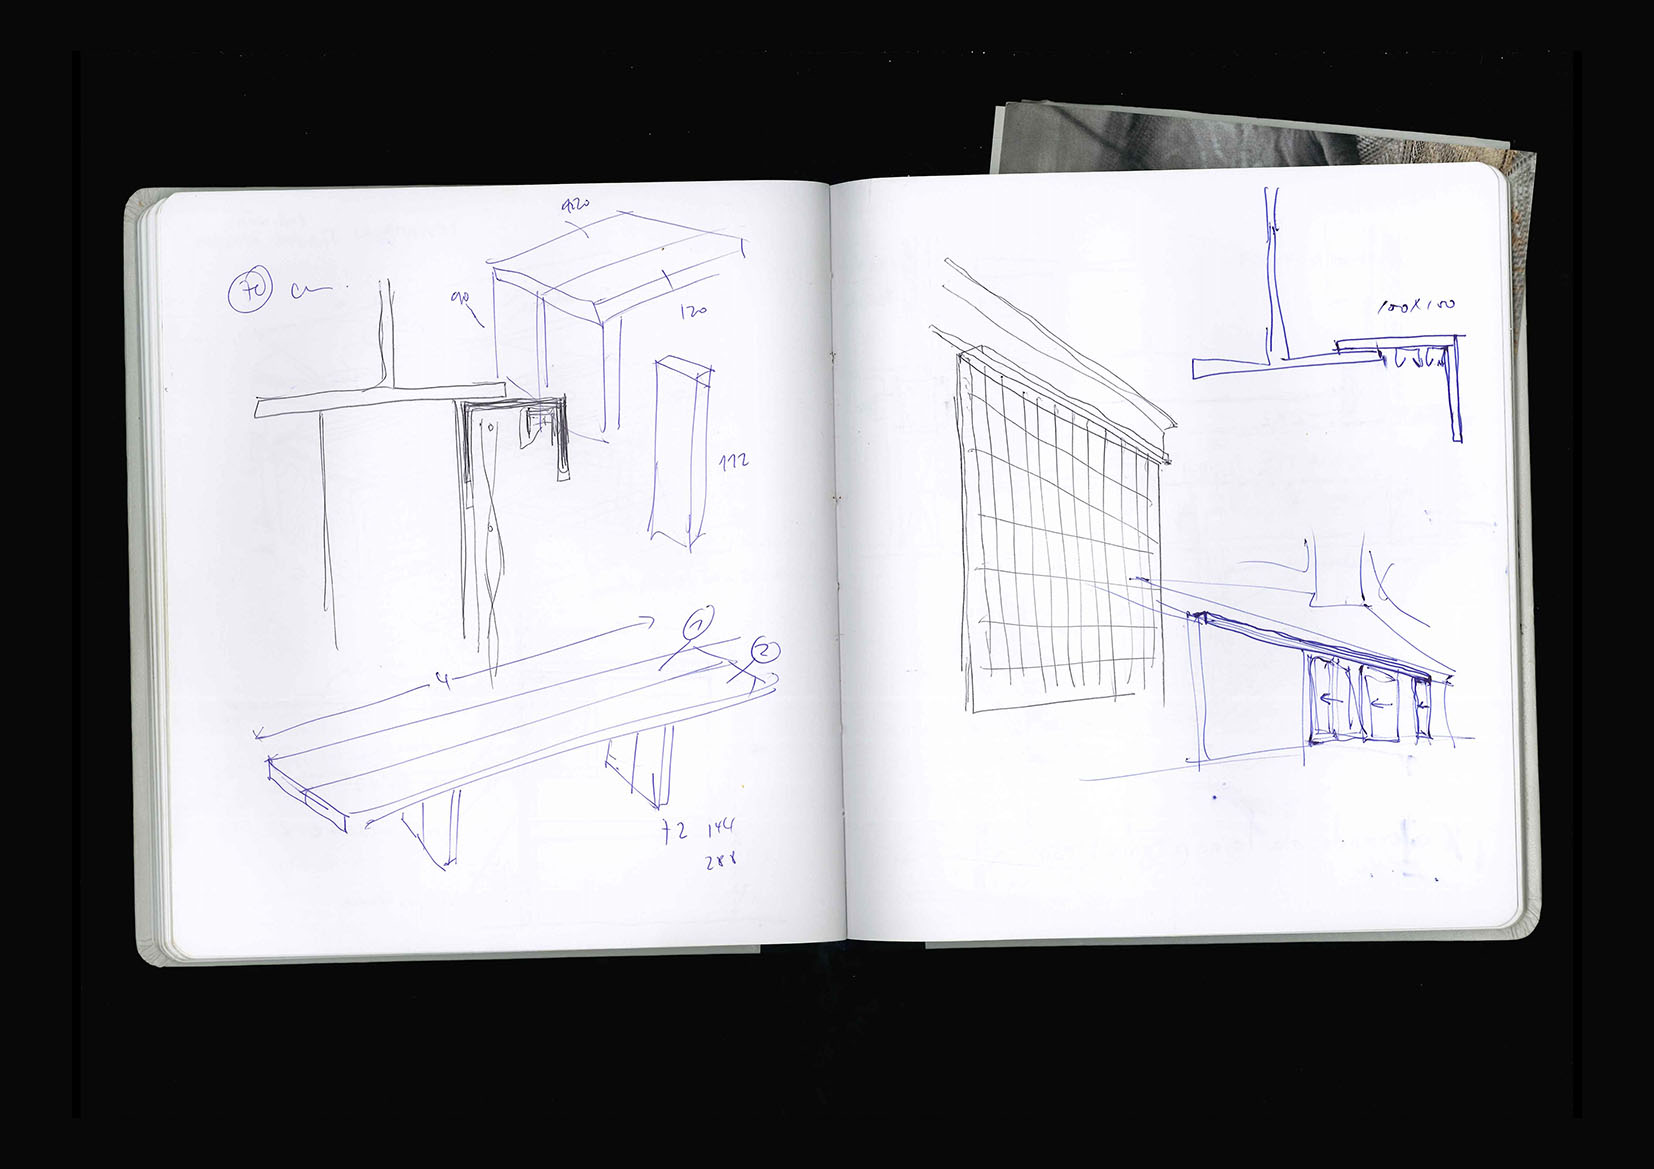 70 cm
420
90
120
112
4
1
2
72 144
288
100x100